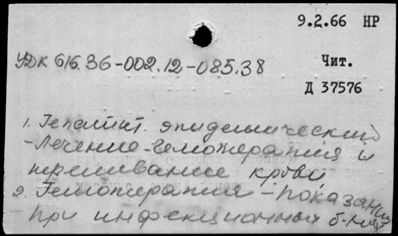 9.2.66 НР
УДК 616.36-002.12-085.38
Чит.
Д 37576
1. Гепатит эпидемический
- Лечение - гемотерапия и
переливание крови
2. Гемотерапия - показания
при инфекционных б-нях